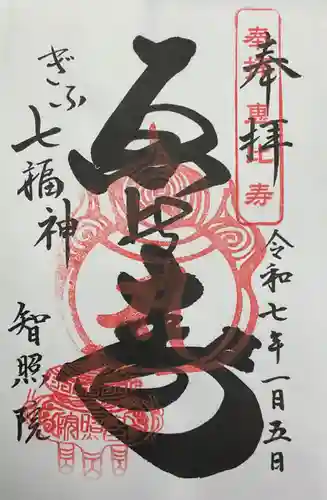 奉拝
奉拝 恵比寿
令和七年一月五日
恵比寿
ぎふ七福神
智照院